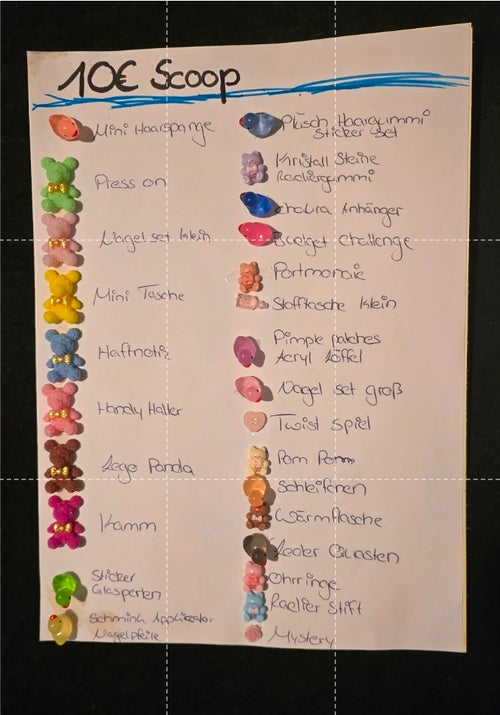 10€ Scoop
Mini Haarspange
Press on
Nagel set klein
Mini Tasche
Haftnotiz
Handy Halter
Lego Panda
Kamm
Sticker
Glasperlen
Schmink Applicator
Nagelpfeile
Plüsch Haargummi
Sticker set
Kristall Steine
Radiergummi
Chakra Anhänger
Budget Challenge
Portmonaie
Stofftasche klein
Pimple patches
Acryl Löffel
Nagel set groß
Twist Spiel
Pom Pom
Schleifchen
Wärmflasche
Leder Quasten
Ohrringe
Radier Stift
Mystery